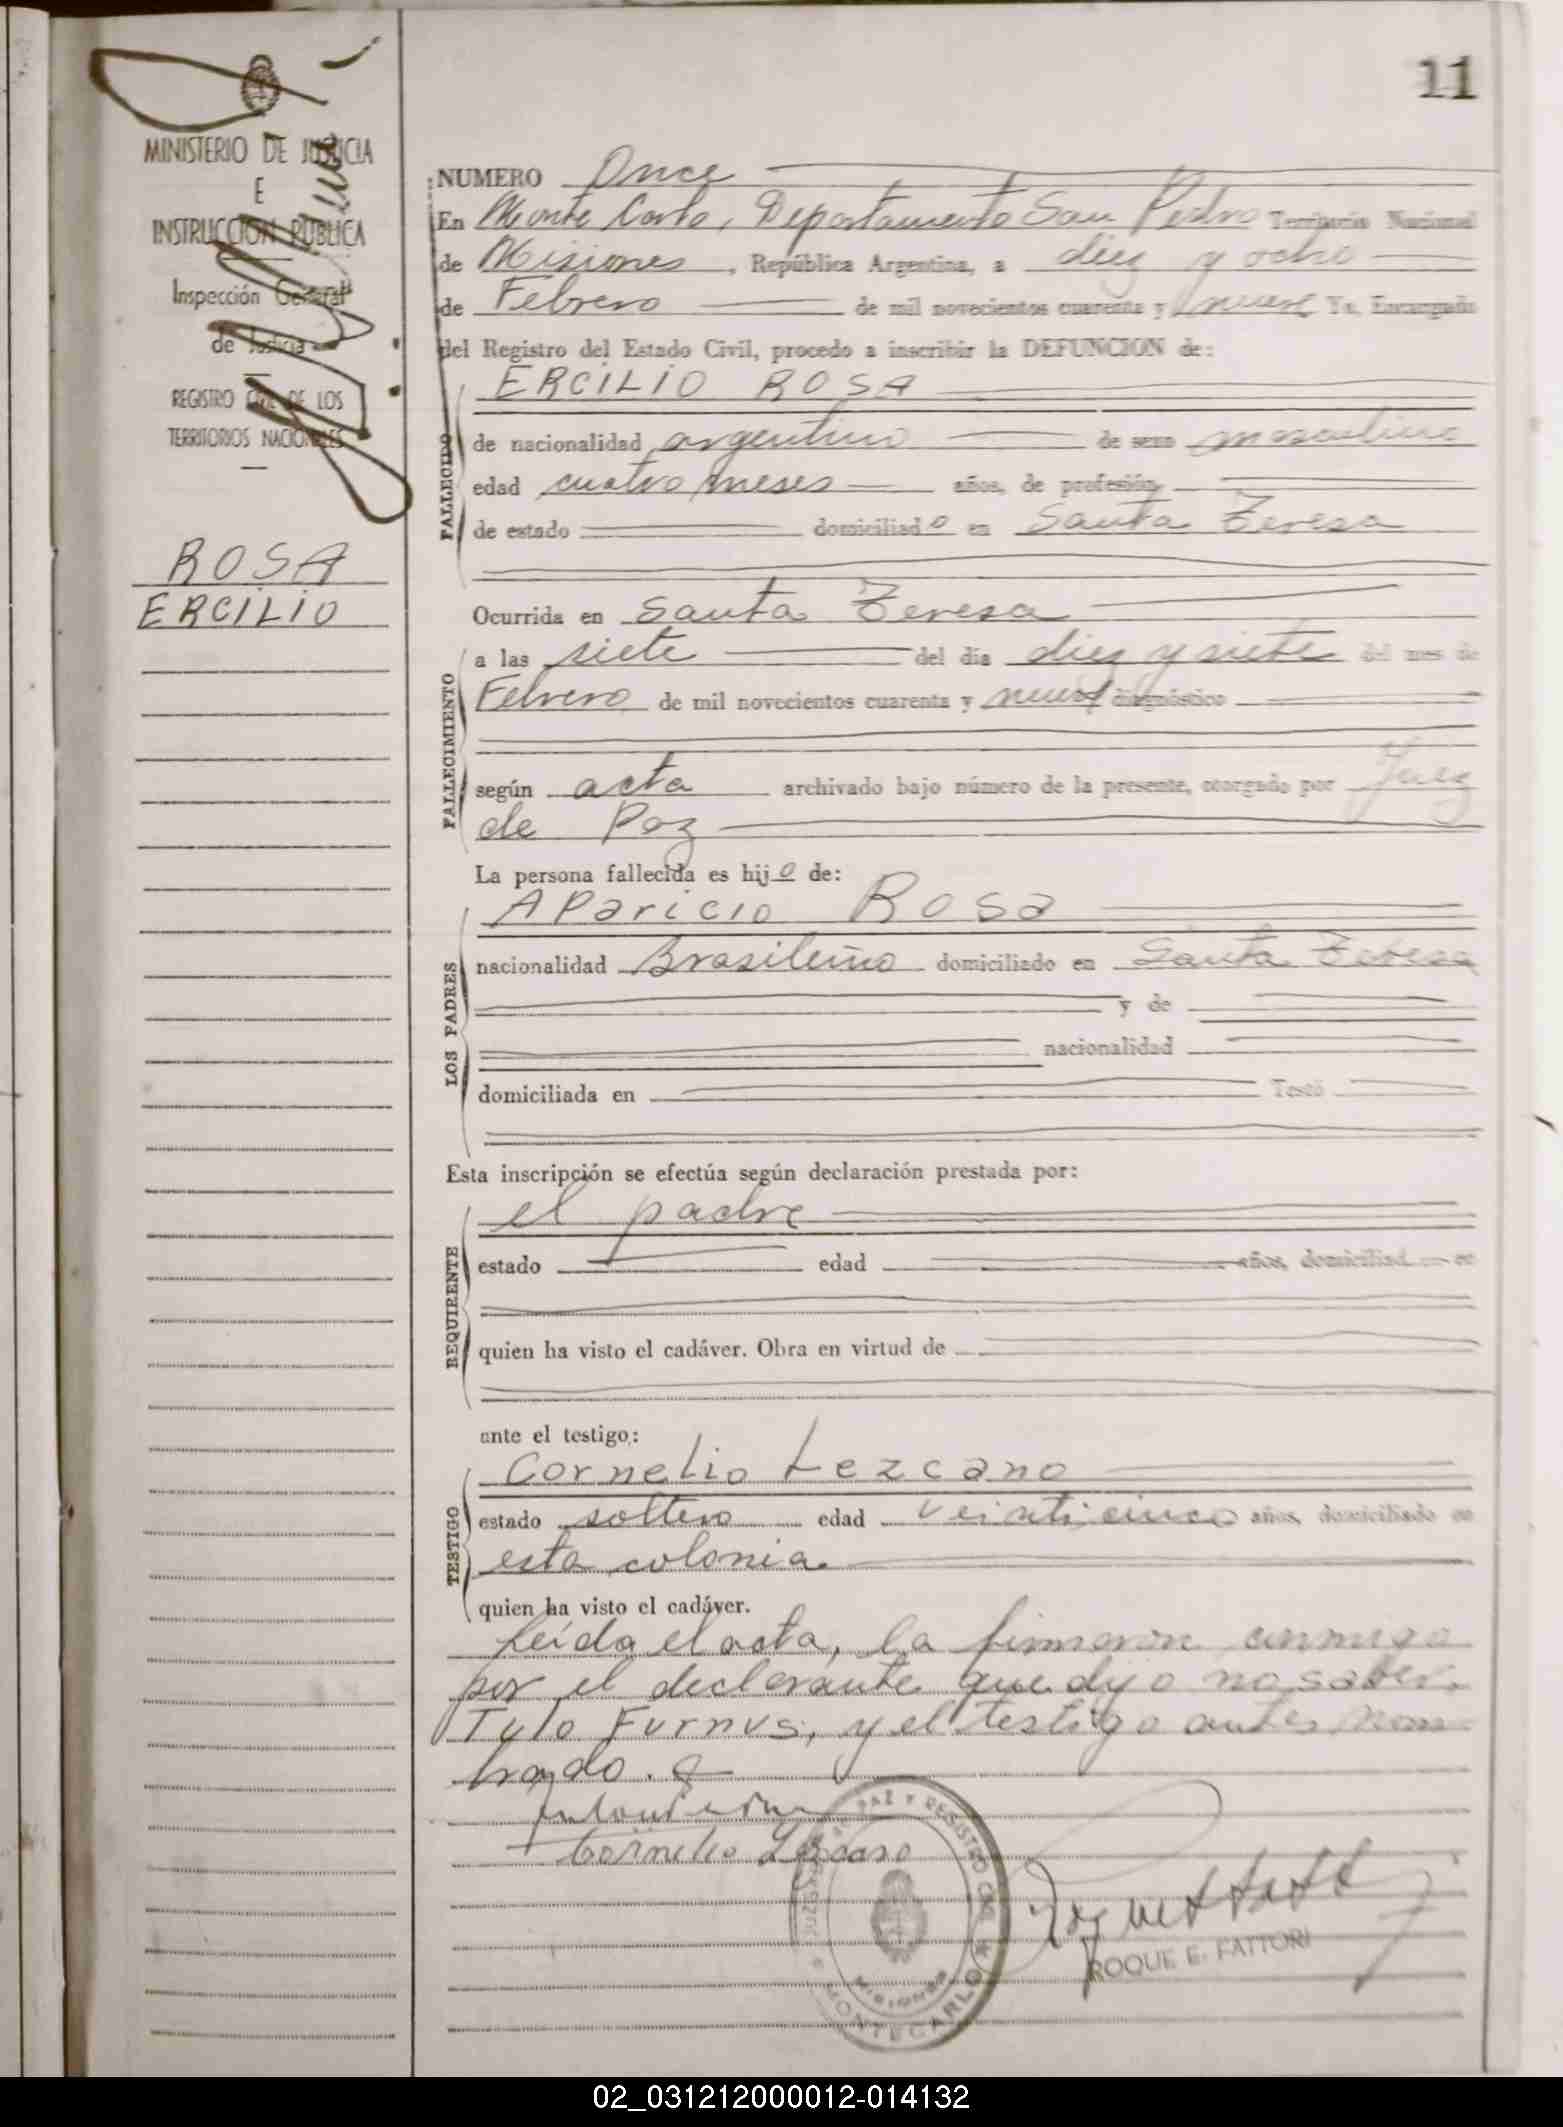 11
MINISTERIO DE JUSTICIA
E
INSTRUCCION PUBLICA
Inspección General
de Justicia
REGISTRO CIVIL DE LOS
TERRITORIOS NACIONALES
ROSA
ERCILIO
NUMERO Once
En Monte Carlo, Departamento San Pedro Territorio Nacional
de Misiones, República Argentina, a diez y ocho
de Febrero de mil novecientos cuarenta y nueve Yo, Encargado
del Registro del Estado Civil, procedo a inscribir la DEFUNCION de:
FALLECIDO
ERCILIO ROSA
de nacionalidad argentino de sexo masculino
edad cuatro meses años, de profesión
de estado domiciliado en Santa Teresa
FALLECIMIENTO
Ocurrida en Santa Teresa
a las siete del día diez y siete del mes de
Febrero de mil novecientos cuarenta y nueve diagnóstico
según acta archivado bajo número de la presente, otorgado por Juez
de Paz
La persona fallecida es hijo de:
LOS PADRES
Aparicio Rosa
nacionalidad Brasileño domiciliado en Santa Teresa
y de
nacionalidad
domiciliada en Testó
Esta inscripción se efectúa según declaración prestada por:
REQUIRENTE
el padre
estado edad años, domiciliad en
quien ha visto el cadáver. Obra en virtud de
ante el testigo:
TESTIGO
Cornelio Lezcano
estado soltero edad veinticinco años, domiciliado en
esta colonia
quien ha visto el cadáver.
Leída el acta, la firmaron conmigo
por el declarante que dijo no saber,
Tulo Furnus, y el testigo antes nom-
brado.
Cornelio Lezcano
JUZGADO DE PAZ Y REGISTRO CIVIL
MISIONES
MONTECARLO
ROQUE E. FATTORI
02_031212000012-014132